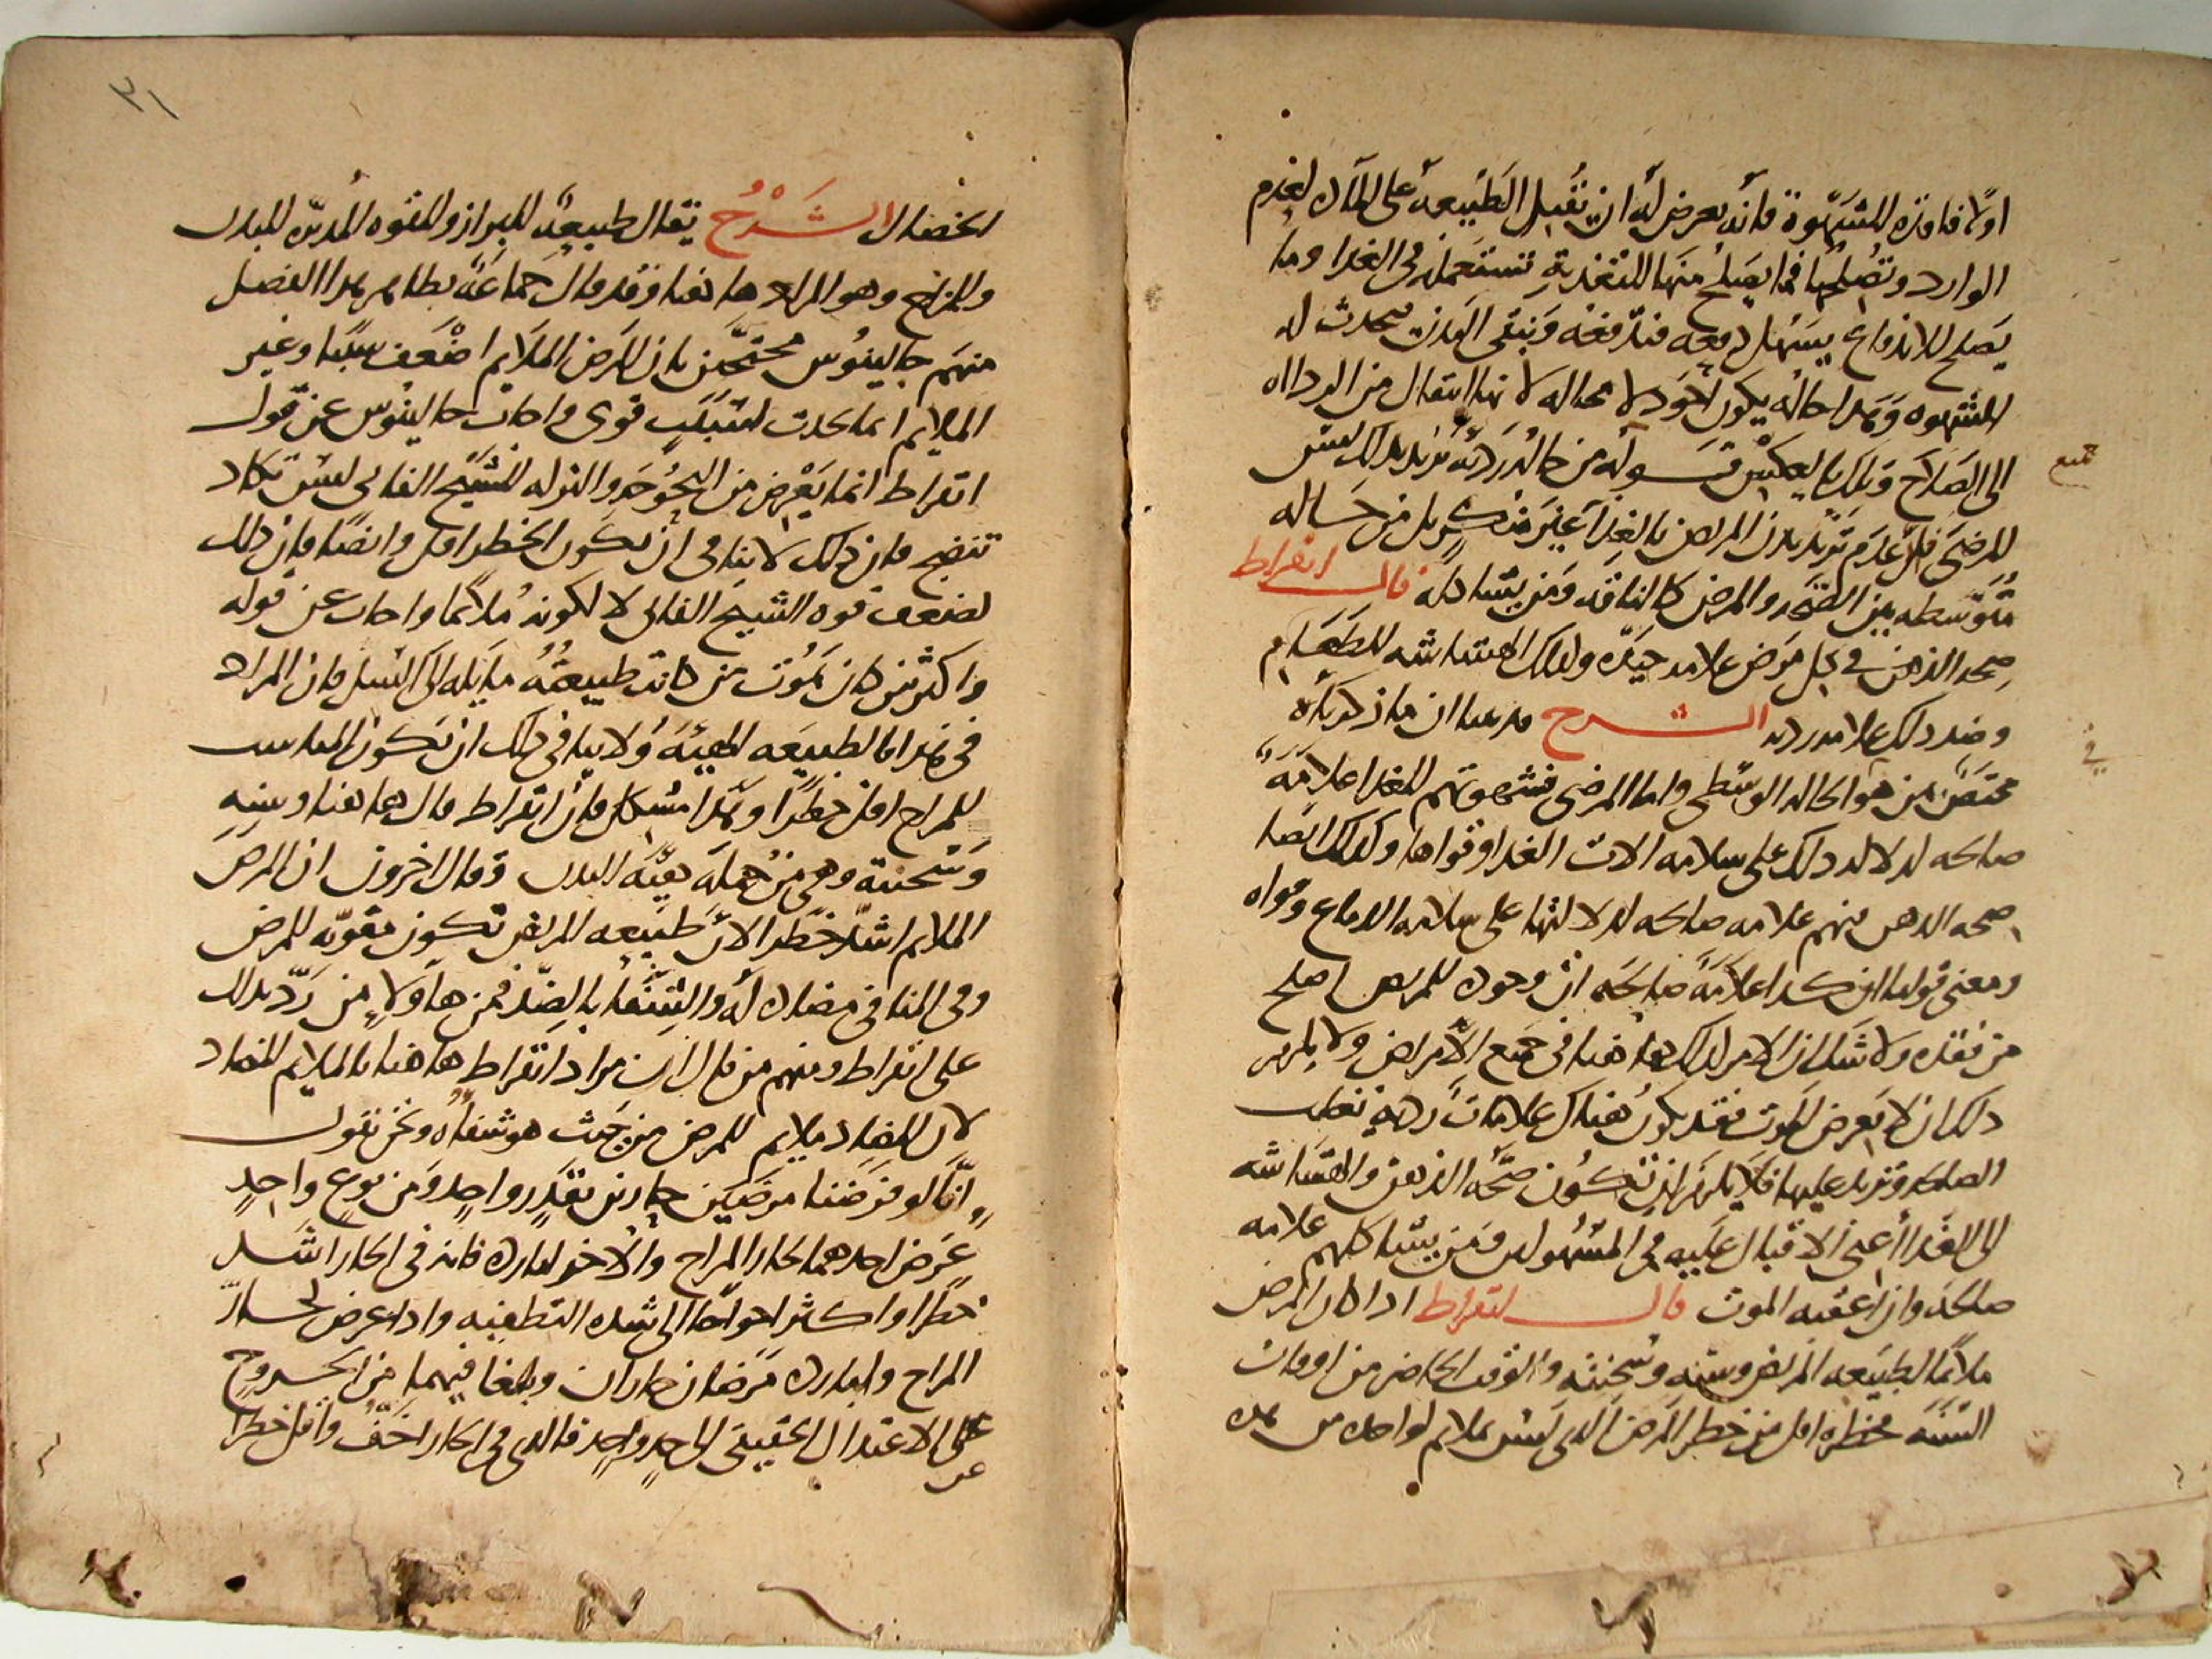 اولا فاقده للشهوة فانه يعرض له ان تقبل الطبيعه على المادة لعدم
الوارد وتصلحها فما يصلح منها للتغذية تستعمله في الغدا وما
يصلح للاندفاع يسهل دفعه فتدفعه وينقى البدن فيحدث له
الشهوه وهذا حاله يكون اجود لا محاله لانها انتقال من الرداه
الى الصلاح وتلك بالعكس قوله من حاله رديه يريد بذلك ليس
المرضى فان عدم تزيد بدن المريض بالغذا غير منكر بل من حاله
متوسطه بين الصحه والمرض كالناقه ومن يشاكله قال ابقراط
صحه الذهن في كل مرض علامه جيده وكذلك الهشاشه للطعام
وضد ذلك علامه رديه الشرح قد علمنا ان ما ذكرناه
مختص بمن هو في الحاله الوسطى واما المرضى فشهوتهم للغدا علامة
صالحه لدلاله ذلك على سلامه الات الغدا وقواها وكذلك ايضا
صحه الذهن منهم علامه صالحه لدلالتها على سلامه الدماغ وقواه
ومعنى قولنا ان كذا علامة صالحه ان وجوده للمريض اصلح
من فقده ولا شك ان الامر كذلك هاهنا في جميع الامراض ولا يلزم من
ذلك ان لا يعرض الموت فقد يكون هناك علامات ردية تغلب
الصالحه وتزيد عليها فلا يلزم ان تكون صحه الذهن والهشاشه
الى الغدا اعني الاقبال عليه في المسهولين ومن يشاكلهم علامه
صالحه وان اعقبه الموت قال ابقراط اذا كان المرض
ملائما لطبيعه المريض وسنه وسحنته والوقت الحاضر من اوقات
السنه فخطره اقل من خطر المرض الذي ليس بملائم لواحده من هذه
الخصال الشرح يقال طبيعة للبراز وللقوه المدبره للبدن
وللمزاج وهو المراد هاهنا وقد قال جماعة بظاهر هذا الفصل
منهم جالينوس محتجين بان المرض الملايم اضعف سببا وغير
الملايم انما يحدث لسبب قوى واجاب جالينوس عن قول
ابقراط انما يعرض من البحوحه والنزله للشيخ الفاني ليس يكاد
تنضج فان ذلك لا ينافي ان يكون الخطر اقل وايضا فان ذلك
لضعف قوه الشيخ الفاني لا لكونه ملائما واجاب عن قوله
واكثر من كان يموت من كانت طبيعته مايله الى السل فان المراد
في هذا بالطبيعه الهيئة ولا ينافي ذلك ان يكون المناسب
للمزاج اقل خطرا وهذا مشكل فان ابقراط قال هاهنا وسنه
وسحنته وهي من جملة هيئة البدن وقال اخرون ان المرض
الملايم اشد خطرا لان طبيعه المريض تكون مقويه للمرض
وفي المنافي مضادة له والشفا بالضد فمن هاولاء من رد بذلك
على ابقراط ومنهم من قال ان مراد ابقراط هاهنا بالملايم المضاد
لان المضاد ملايم للمرض من حيث هو شفاؤه ونحن نقول
انا لو فرضنا مرضين حارين بقدر واحد ومن نوع واحد
عرض احدهما لحار المزاج والاخر لبارده فانه في الحار اشد
خطرا واكثر احواجا الى شده التطفيه واذا عرض لحار
المزاج ولبارده مرضان حاران وبلغا فيهما من الخروج
عن الاعتدال الحقيقي الى حد واحد فالذي في الحار اخف واقل خطرا